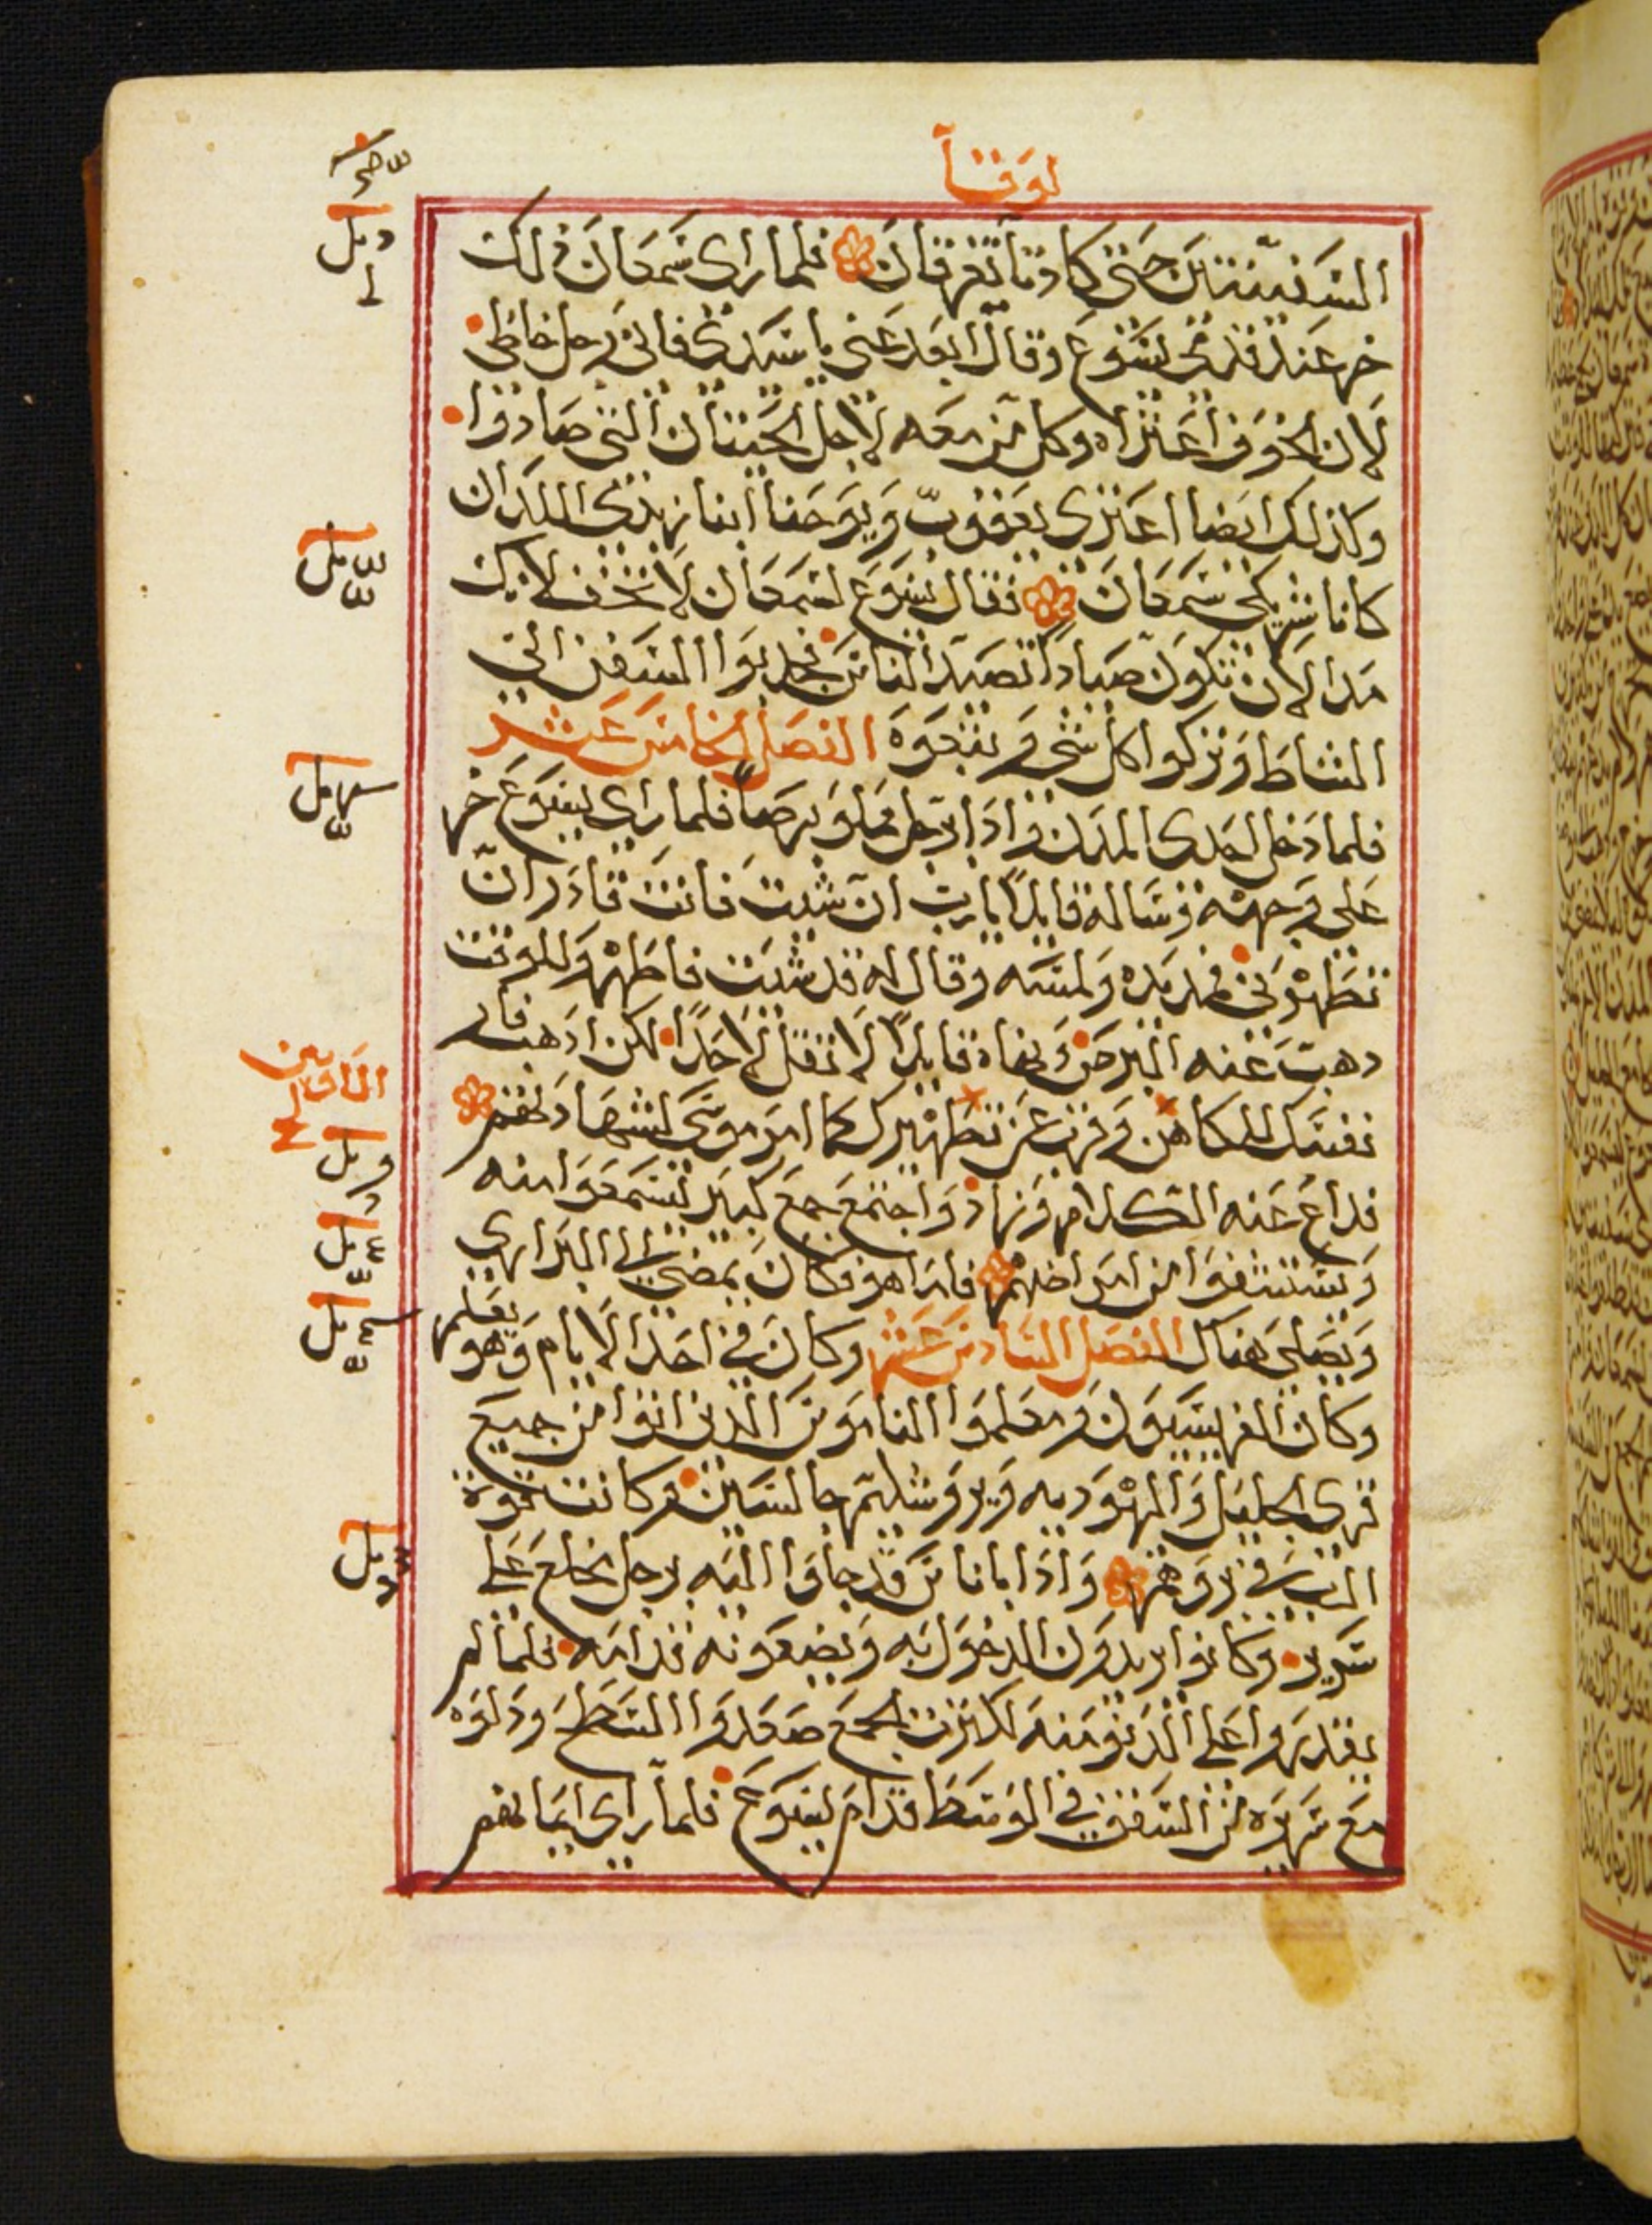 لوقا
السفينتين حتى كادتا تغرقان فلما راى سمعان ذلك
خر عند قدمي يسوع وقال ابعد عني يا سيدي فاني رجل خاطي
لان الخوف اعتراه وكل من معه لاجل الحيتان التي صادوا
وكذلك ايضا اعترى يعقوب ويوحنا ابنا زبدي اللذان
كانا شريكي سمعان فقال يسوع لسمعان لا تخف لانك
مدا لان تكون صيادا تصيد الناس فخلوا السفن الى
الشاط وتركوا كل شي وتبعوه الفصل الخامس عشر
فلما دخل احدى المدن واذا رجل مملو برصا فلما راى يسوع خر
على وجهه وساله قايلا يا رب ان شيت فانت قادر ان
تطهرني فمد يده ولمسه وقال له قد شيت فاطهر وللوقت
دهبت عنه البرص ونهاه قايلا لا تقل لاحدا لكن ادهب فار
نفسك للكاهن وقرب عن تطهيرك كما امر موسى لشهادتهم
فداع عنه الكلام وزاد واجتمع جمع كبير ليسمعوا منه
ويستشفوا من امراضهم فاما هو فكان يمضي الى البراري
ويصلي هناك الفصل السادس عشر وكان في احد الايام وهو يعلم
وكان الفريسيون ومعلموا الناموس الدين اتوا من جميع
قرى الجليل واليهوديه ويروشليم جالسين وكانت قوة
الرب في بروهم واذا باناس قد جاوا اليه برجل مخلع على
سرير وكانوا يريدون الدخول به ويضعونه قدامه فلما لم
يقدروا على الدنو منه لكثرت الجمع صعدوا السطح ودلوه
مع سريره من السقف في الوسط قدام يسوع فلما راى ايمانهم